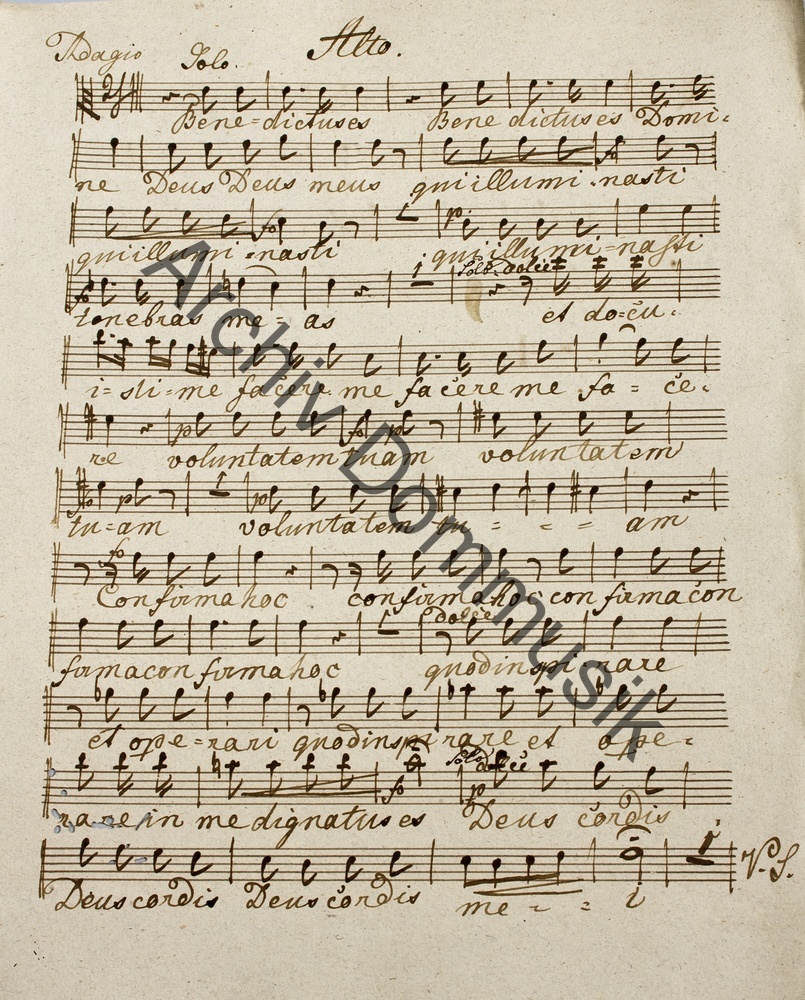 Adagio Solo. Alto.
Bene=dictus es Bene dictus es Domi=
ne Deus Deus meus qui illumi=nasti
fo
qui illumi=nasti qui illumi=nasti
fo p.
Solo dolce
fo
tenebras me=as et do=cu=
i=sti=me facere me facere me fa=ce=
re voluntatem tuam voluntatem
p fo p
tu=am voluntatem tu = = = am
p po
fo
Confirma hoc confirma hoc confirma con
dolce
firma con firma hoc quod inspi=rare
et ope=rari quod inspi rare et ope=
Solo dolce
fo p
rare in me dignatus es Deus cordis
Deus cordis Deus cordis me = = i
V.S.
Archiv Dommusik